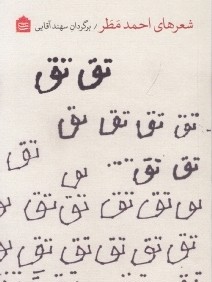 شعرهای احمد مَطَر / برگردانِ سهند آقایی
تق تق
تق تق تق تق
تق
تق تق تق
تق
تق تق تق تق تق
تق تق تق تق تق
تق تق تق تق تق